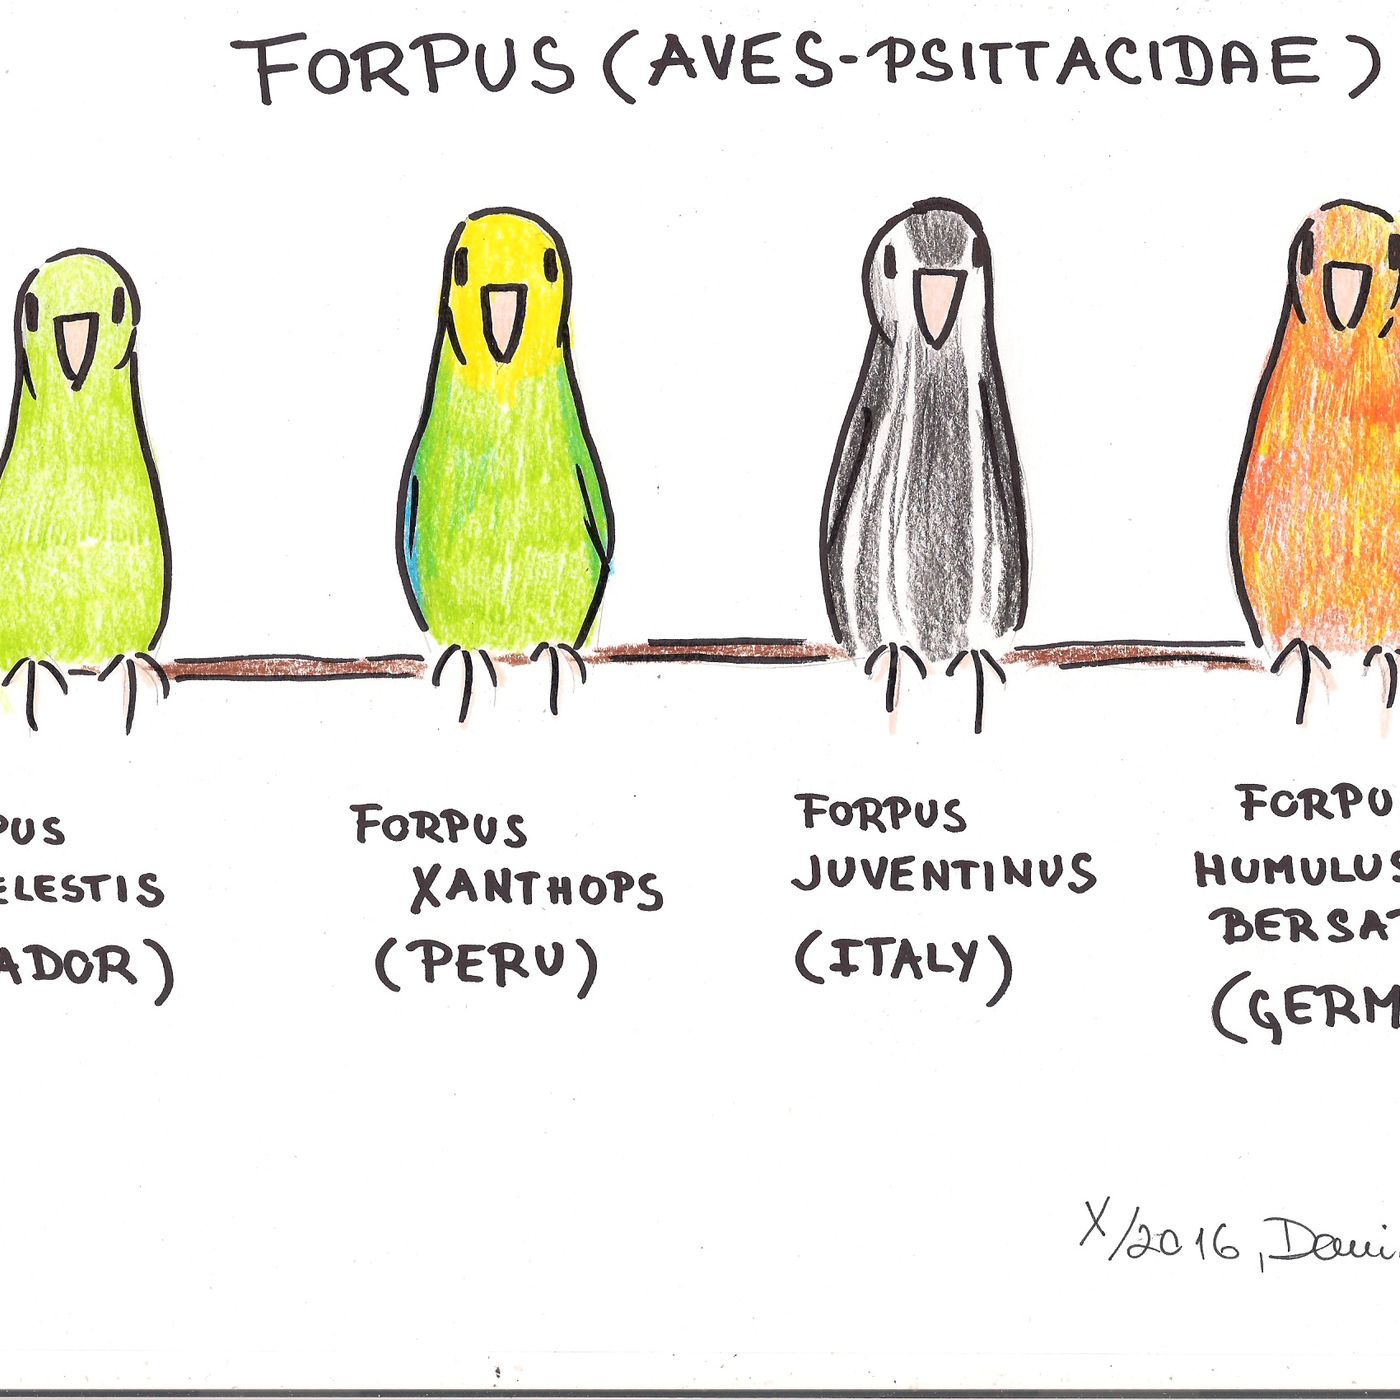 FORPUS (AVES-PSITTACIDAE)
PUS
ELESTIS
ADOR)
FORPUS
XANTHOPS
(PERU)
FORPUS
JUVENTINUS
(ITALY)
FORPU
HUMULUS
BERSA
(GERM
X/2016,